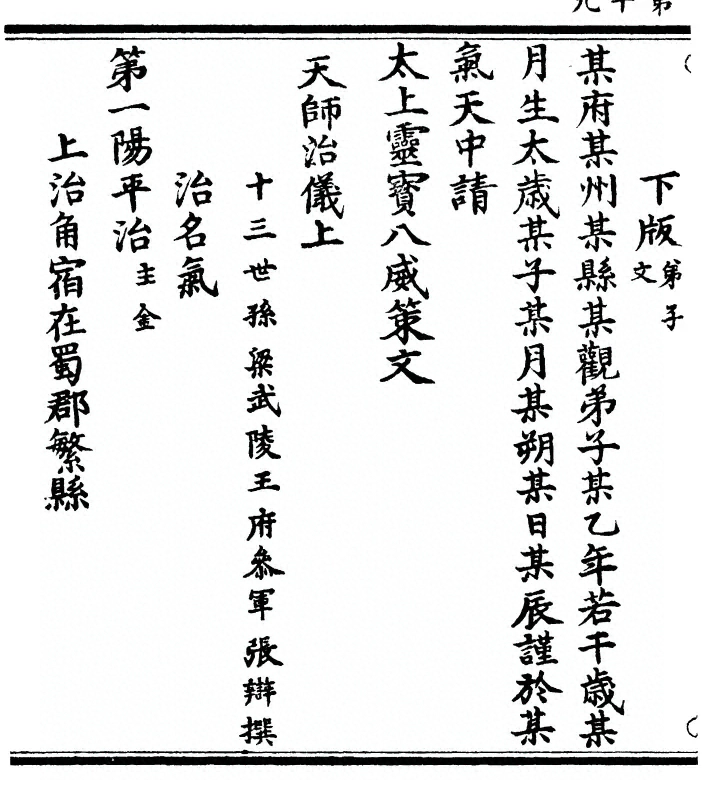 第十九
下版弟子文
某府某州某縣某觀弟子某乙年若干歲某
月生太歲某子某月某朔某日某辰謹於某
氣天中請
太上靈寶八威策文
天師治儀上
十三世孫梁武陵王府參軍張辯撰
治名氣
第一陽平治主金
上治角宿在蜀郡繁縣